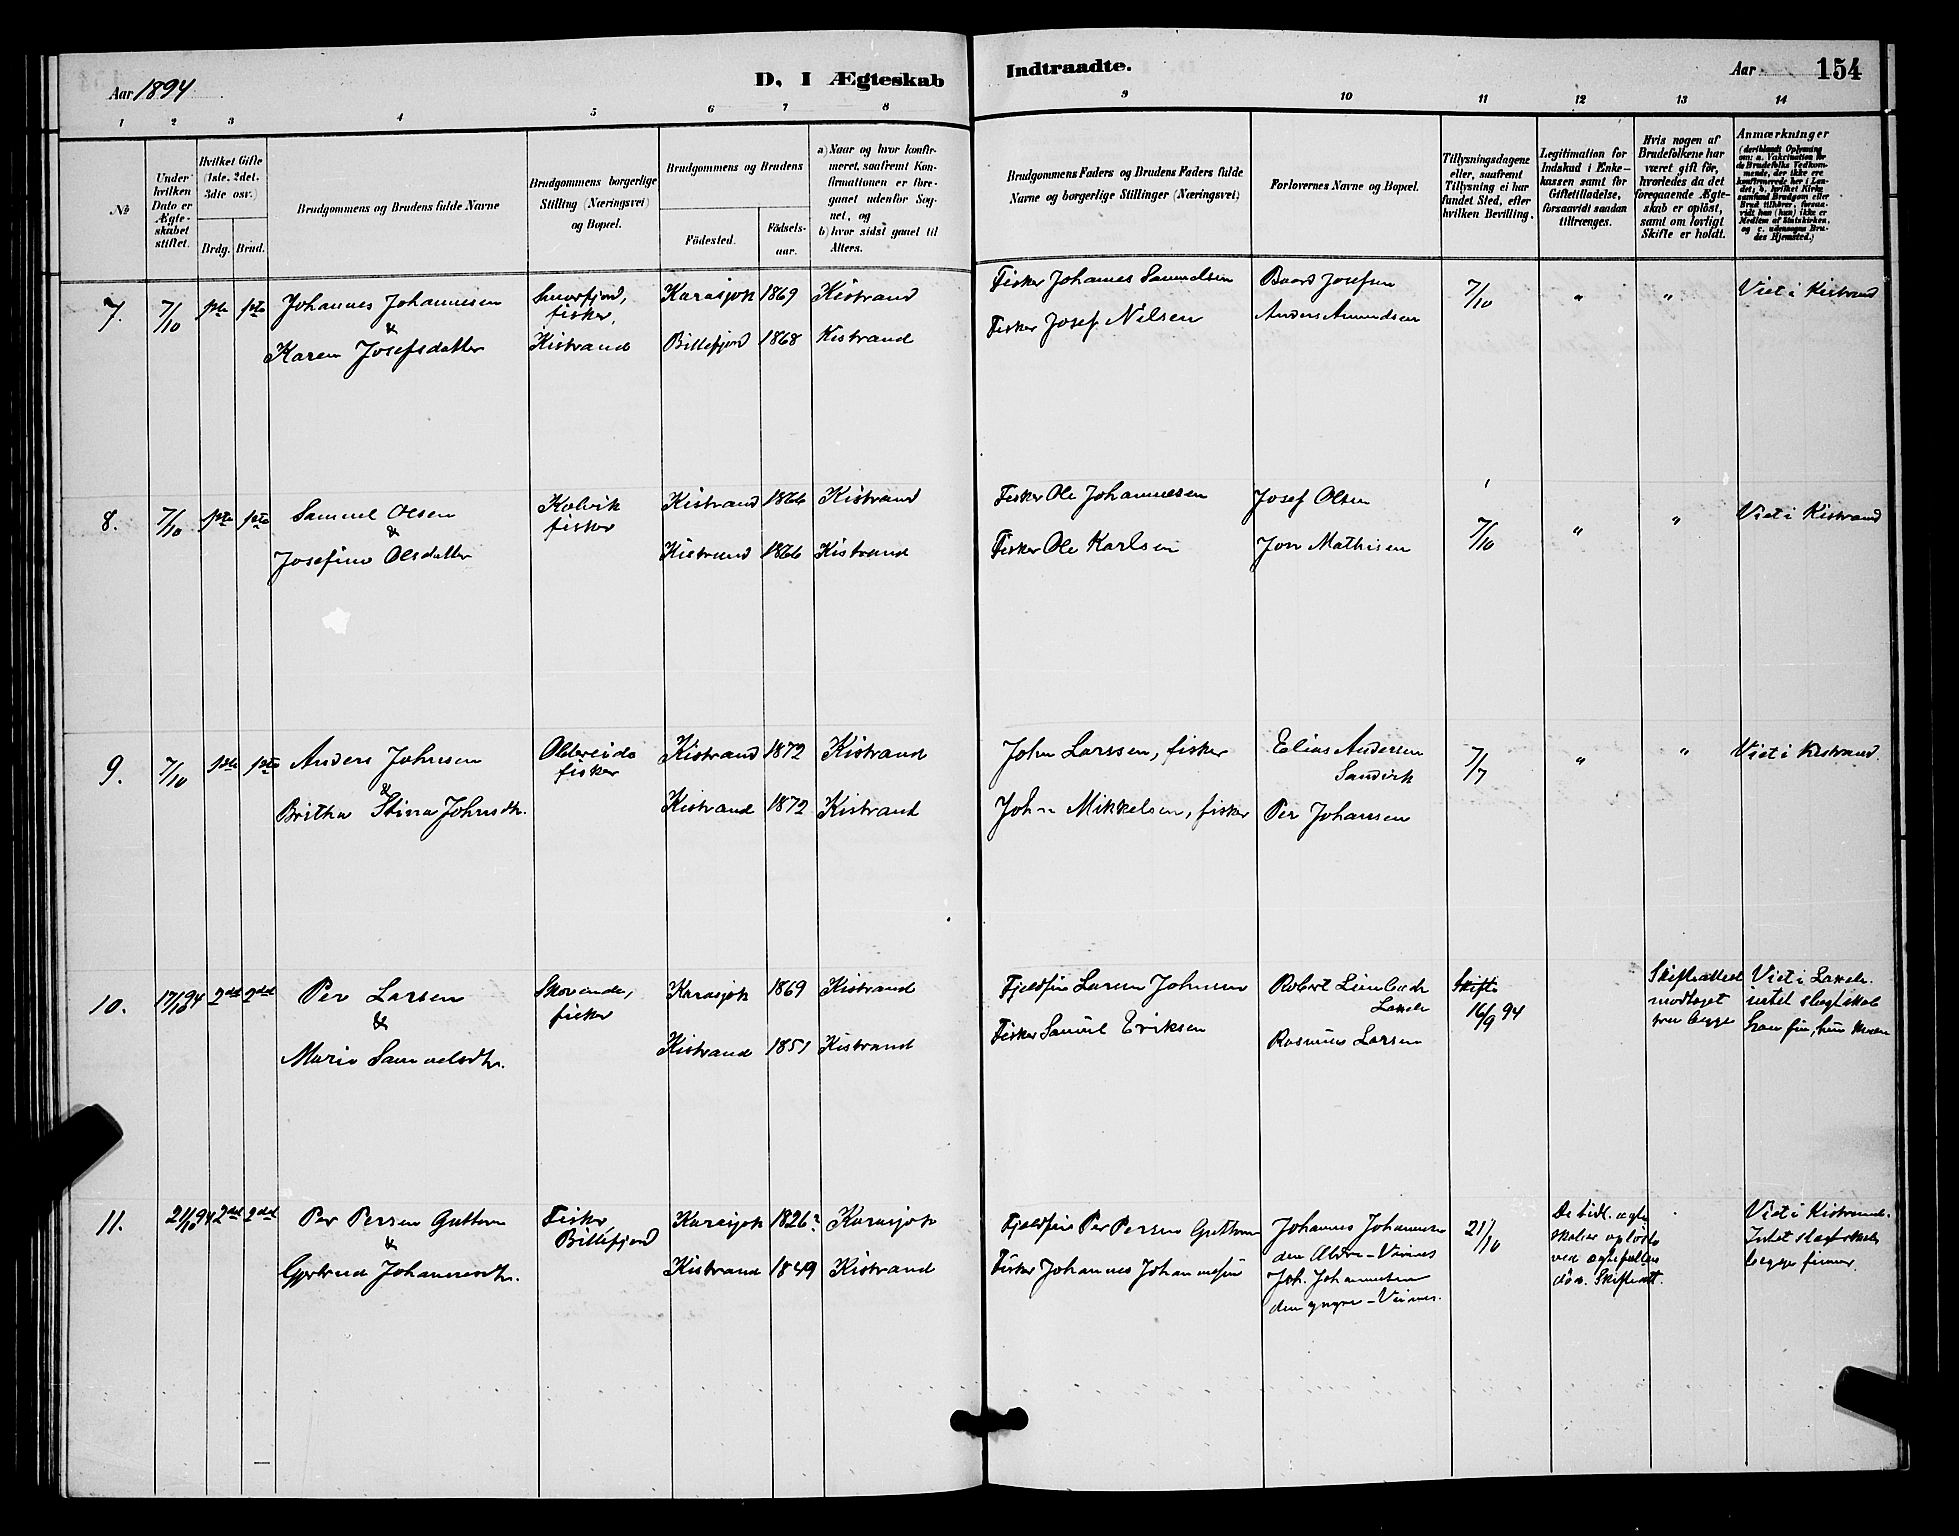 Aar 1894
D. I Ægteskab
Indtraadte.
Aar
154
1 2 3 4 5 6 7 8 9 10 11 12 13 14
No
Under
hvilken
Dato er
Ægte-
skabet
stiftet.
Hvilket Gifte
(1ste, 2det,
3dte osv.)
Brdg. Brud.
Brudgommens og Brudens fulde Navne
Brudgommens borgerlige
Stilling (Næringsvei)
og Bopæl.
Brudgommens og Brudens
Födested.
Födsels-
aar.
a) Naar og hvor konfir-
meret, saafremt Kon-
firmationen er fore-
gaaet udenfor Sog-
net, og
b) hvor sidst gaaet til
Alters.
Brudgommens Faders og Brudens Faders fulde
Navne og borgerlige Stillinger (Næringsvei)
Forlovernes Navne og Bopæl.
Tillysningsdagene
eller, saafremt
Tillysning ei har
fundet Sted, efter
hvilken Bevilling.
Legitimation for
Indskud i Enke-
kassen samt for
Giftetilladelse,
forsaavidt saadan
tiltrænges.
Hvis nogen af
Brudefolkene har
været gift för,
hvorledes da det
foregaaende Ægte-
skab er oplöst,
samt om lovligt
Skifte er holdt.
Anmærkninger
(deriblandt Oplysning
om: a. Vakcination for
de Brudefolks Vedkom-
mende, der ikke ere
konfirmerede her i Lan-
det; b. hvilket Kirke-
samfund Brudgom eller
Brud tilhører, forsaa-
vidt han (hun) ikke er
Medlem af Statskirken,
og c. udensogns Bru-
des Hjemsted.)
7. 7/10 1ste 1ste Johannes Johannesen Smørfjord, Karasjok 1869 Kistrand Fisker Johannes Samuelsen Baard Josefsen 7/10 " " Viet i Kistrand
& fisker.
Karen Josefsdatter Kistrand Billefjord 1868 Kistrand Fisker Josef Nilsen Anders Amundsen
8. 7/10 1ste 1ste Samuel Olsen Kolvik Kistrand 1866 Kistrand Fisker Ole Johannesen Josef Olsen 7/10 " " Viet i Kistrand
& fisker
Josefine Olsdatter Kistrand 1866 Kistrand Fisker Ole Karlsen Jon Mathisen
9. 7/10 1ste 1ste Anders Johnsen Oldereide Kistrand 1872 Kistrand John Larssen, fisker Elias Andersen 7/7 " " Viet i Kistrand.
& fisker Sandvik
Britha Stina Johnsdtr. Kistrand 1872 Kistrand John Mikkelsen, fisker Per Johansen
10. 17/10 94 2det 2det Per Larsen fisker Karasjok 1869 Kistrand Fjeldfin Johnsen Robert Lakselv 16/9 94 Skifteattest Viet i Lakselv.
& modtaget
Marie Samuelsdtr. Kistrand 1851 Kistrand Fisker Samuel Eriksen Rasmus Larsen
11. 21/10 94 2det 2det Per Persen Guttorm Fisker, Karasjok 1826? Karasjok Fjeldfin Per Persen Guttorm Johannes Johannesen 21/10 De tidl. ægte- Viet i Kistrand.
& Billefjord den Ældre - skaber opløste Intet slægtskab
Gjertrud Johannesdtr. Kistrand 1849 Kistrand Fisker Johannes Johannesen Joh. Johannesen ved ægtefællers begge finner.
den yngre - død. Skifteatt.